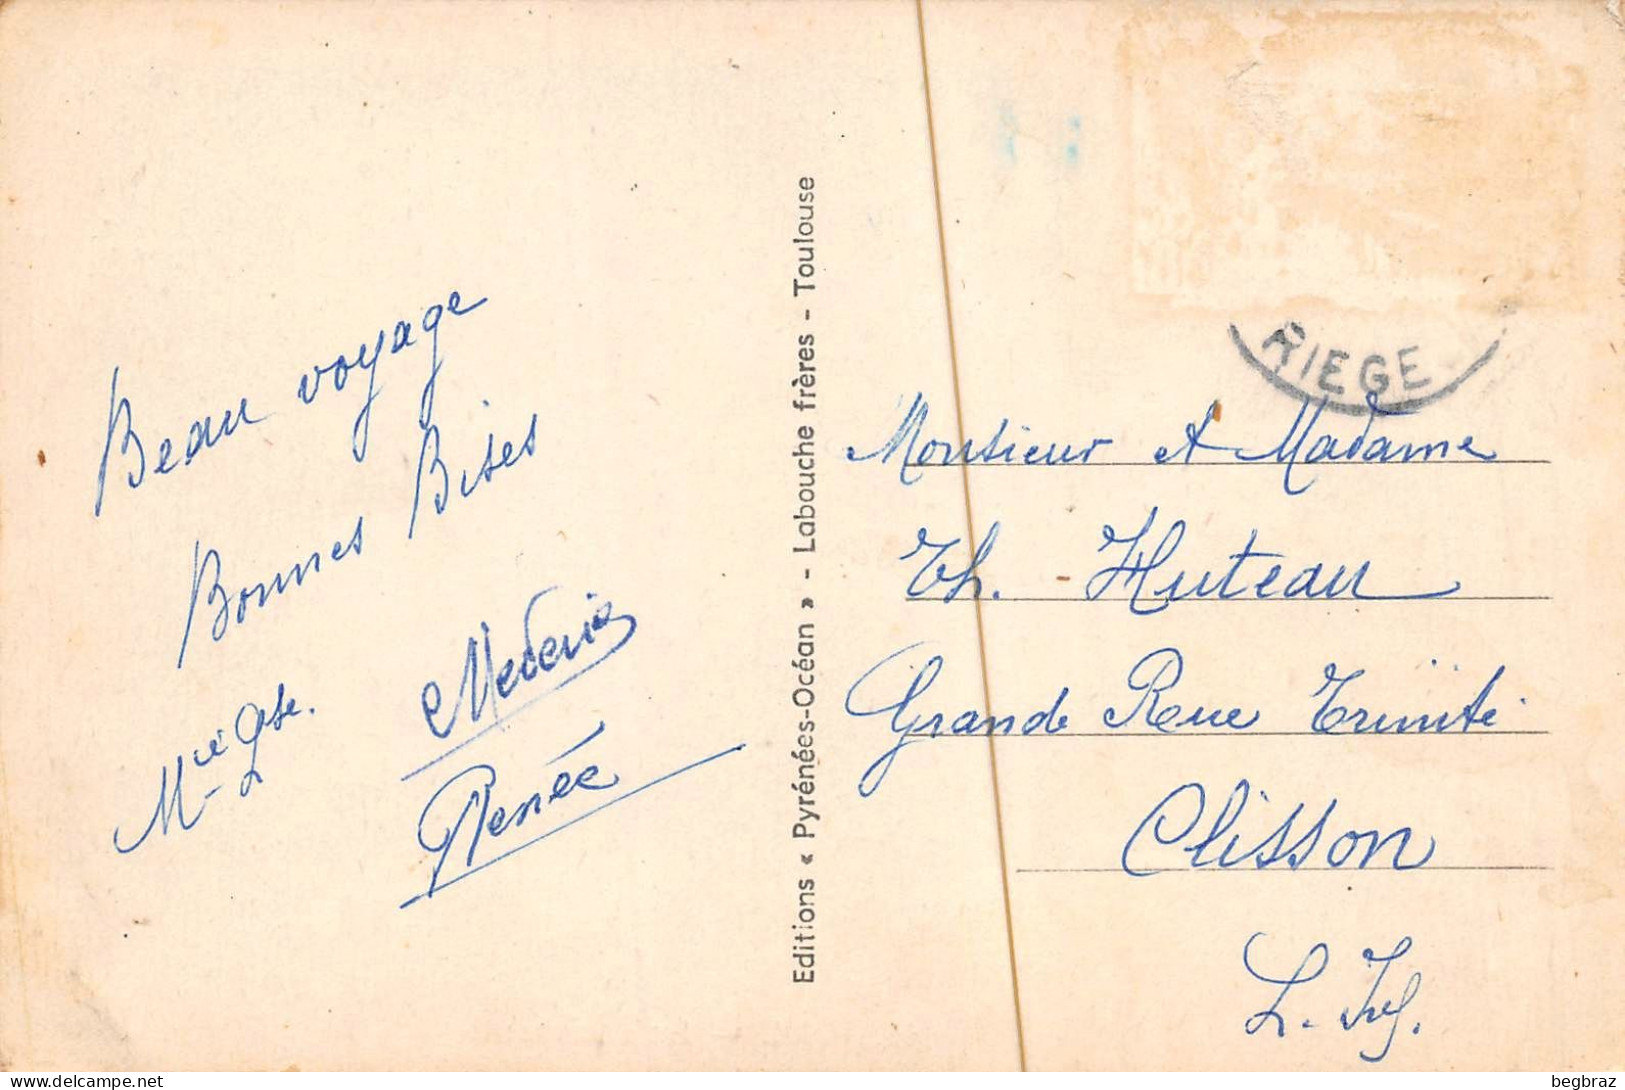 Beau voyage
Bonnes Bises
Mederic
Renée
Editions « Pyrénées-Océan » - Labouche frères - Toulouse
RIEGE
Monsieur et Madame
Th. Huteau
Grande Rue Trinité
Clisson
L. Inf.
begbraz